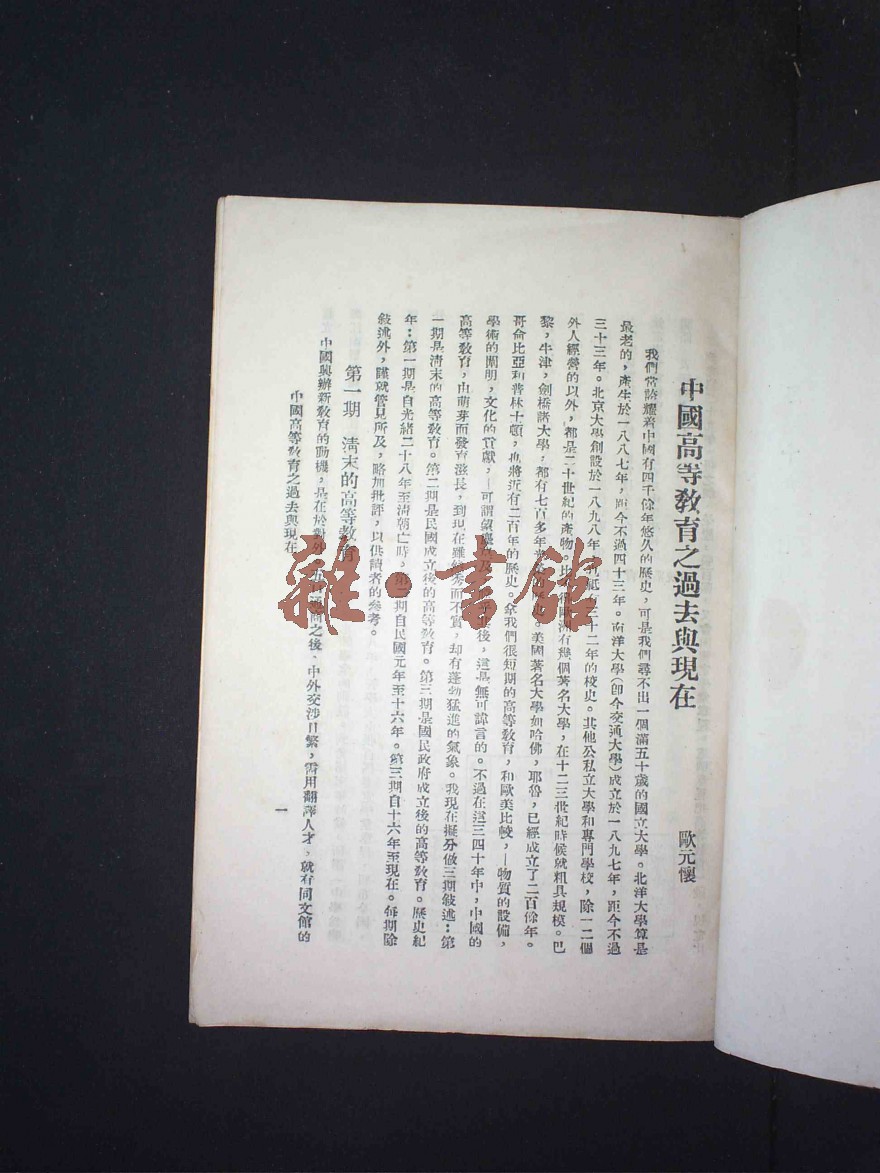 中國高等教育之過去與現在
歐元懷
我們常誇耀着中國有四千餘年悠久的歷史，可是我們尋不出一個滿五十歲的國立大學。北洋大學算是
最老的，產生於一八八七年，距今不過四十三年。南洋大學（即今交通大學）成立於一八九七年，距今不過
三十三年。北京大學創設於一八九八年，祇有三十二年的校史。其他公私立大學和專門學校，除一二個
外人經營的以外，都是二十世紀的產物。比歐洲有幾個著名大學，在十二三世紀時候就粗具規模。巴
黎，牛津，劍橋諸大學，都有七百多年的歷史。美國著名大學如哈佛，耶魯，已經成立了二百餘年。
哥倫比亞和普林士頓，也將近有二百年的歷史。拿我們很短期的高等教育，和歐美比較，—物質的設備，
學術的闡明，文化的貢獻，—可謂望塵後，這是無可諱言的。不過在這三四十年中，中國的
高等教育，由萌芽而發育滋長，到現在雖而不實，却有蓬勃猛進的氣象。我現在擬分做三期敍述：第
一期是清末的高等教育。第二期是民國成立後的高等教育。第三期是國民政府成立後的高等教育。歷史紀
年：第一期是自光緒二十八年至清朝亡時，第二期自民國元年至十六年。第三期自十六年至現在。每期除
敍述外，謹就管見所及，略加批評，以供讀者的參考。
第一期　清末的高等教育
中國興辦新教育的動機，是在於對外。五口通商之後，中外交涉日繁，需用翻譯人才，就有同文館的
中國高等教育之過去與現在
一
雜·書館